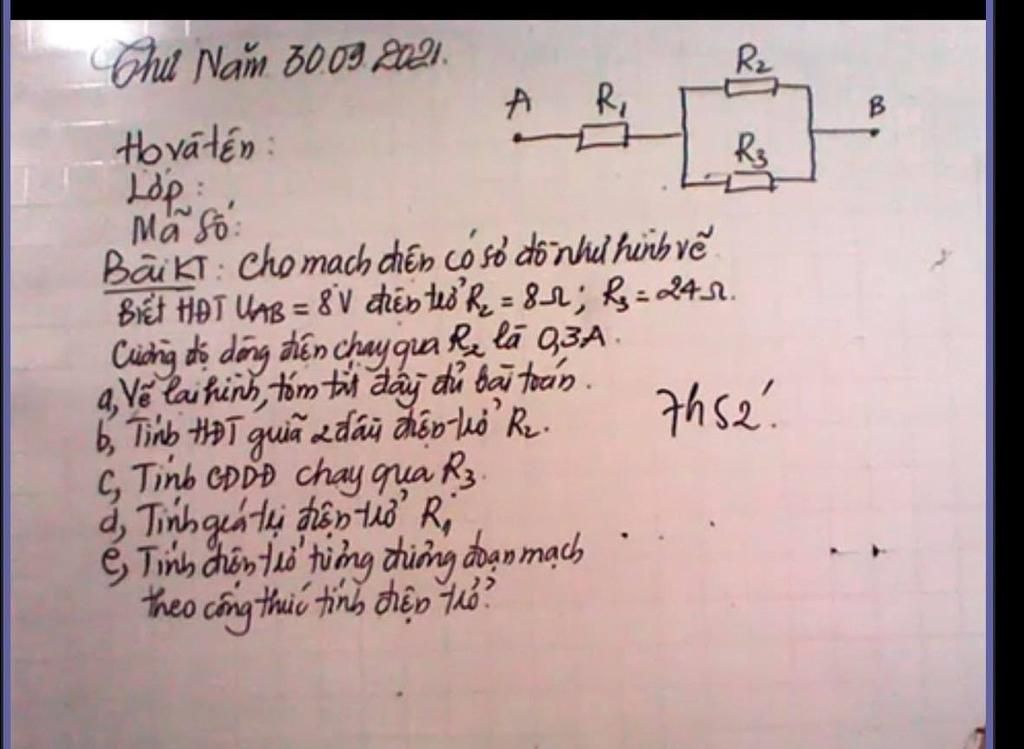 Thứ Năm 30.09.2021.
A R₁ R₂ R₃ B
Họ và tên:
Lớp:
Mã số:
Bài KT: Cho mạch điện có sơ đồ như hình vẽ
Biết HĐT UAB = 8V điện trở R₂ = 8Ω; R₃ = 24Ω.
Cường độ dòng điện chạy qua R₂ là 0,3A.
a, Vẽ lại hình, tóm tắt đầy đủ bài toán.
b, Tính HĐT giữa 2 đầu điện trở R₂.
c, Tính CĐDĐ chạy qua R₃.
d, Tính giá trị điện trở R₁
e, Tính điện trở tương đương đoạn mạch
theo công thức tính điện trở?
7h52'.